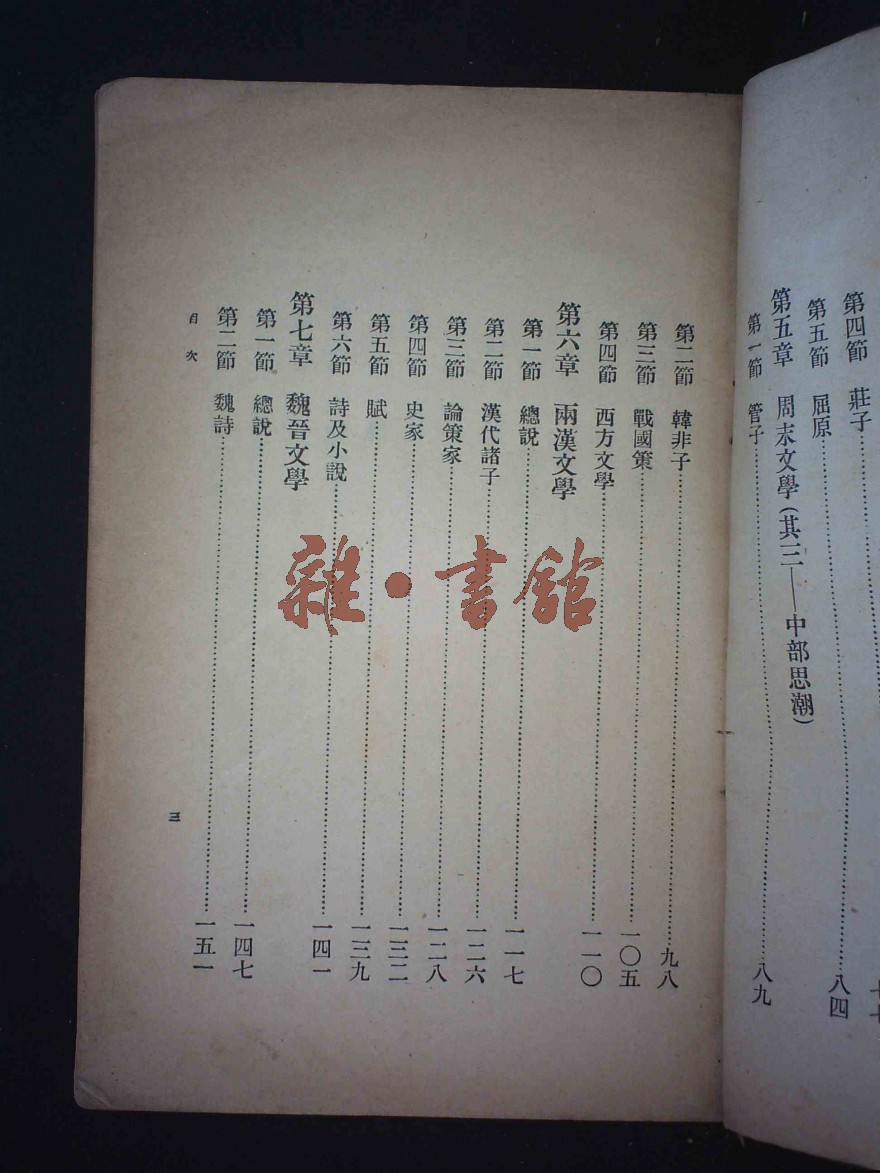 第四節 莊子……七七
第五節 屈原……八四
第五章 周末文學(其三——中部思潮)
第一節 管子……八九
第二節 韓非子……九八
第三節 戰國策……一〇五
第四節 西方文學……一一〇
第六章 兩漢文學
第一節 總說……一一七
第二節 漢代諸子……一二六
第三節 論策家……一二八
第四節 史家……一三二
第五節 賦……一三九
第六節 詩及小說……一四一
第七章 魏晉文學
第一節 總說……一四七
第二節 魏詩……一五一
目次
三
雜·書館